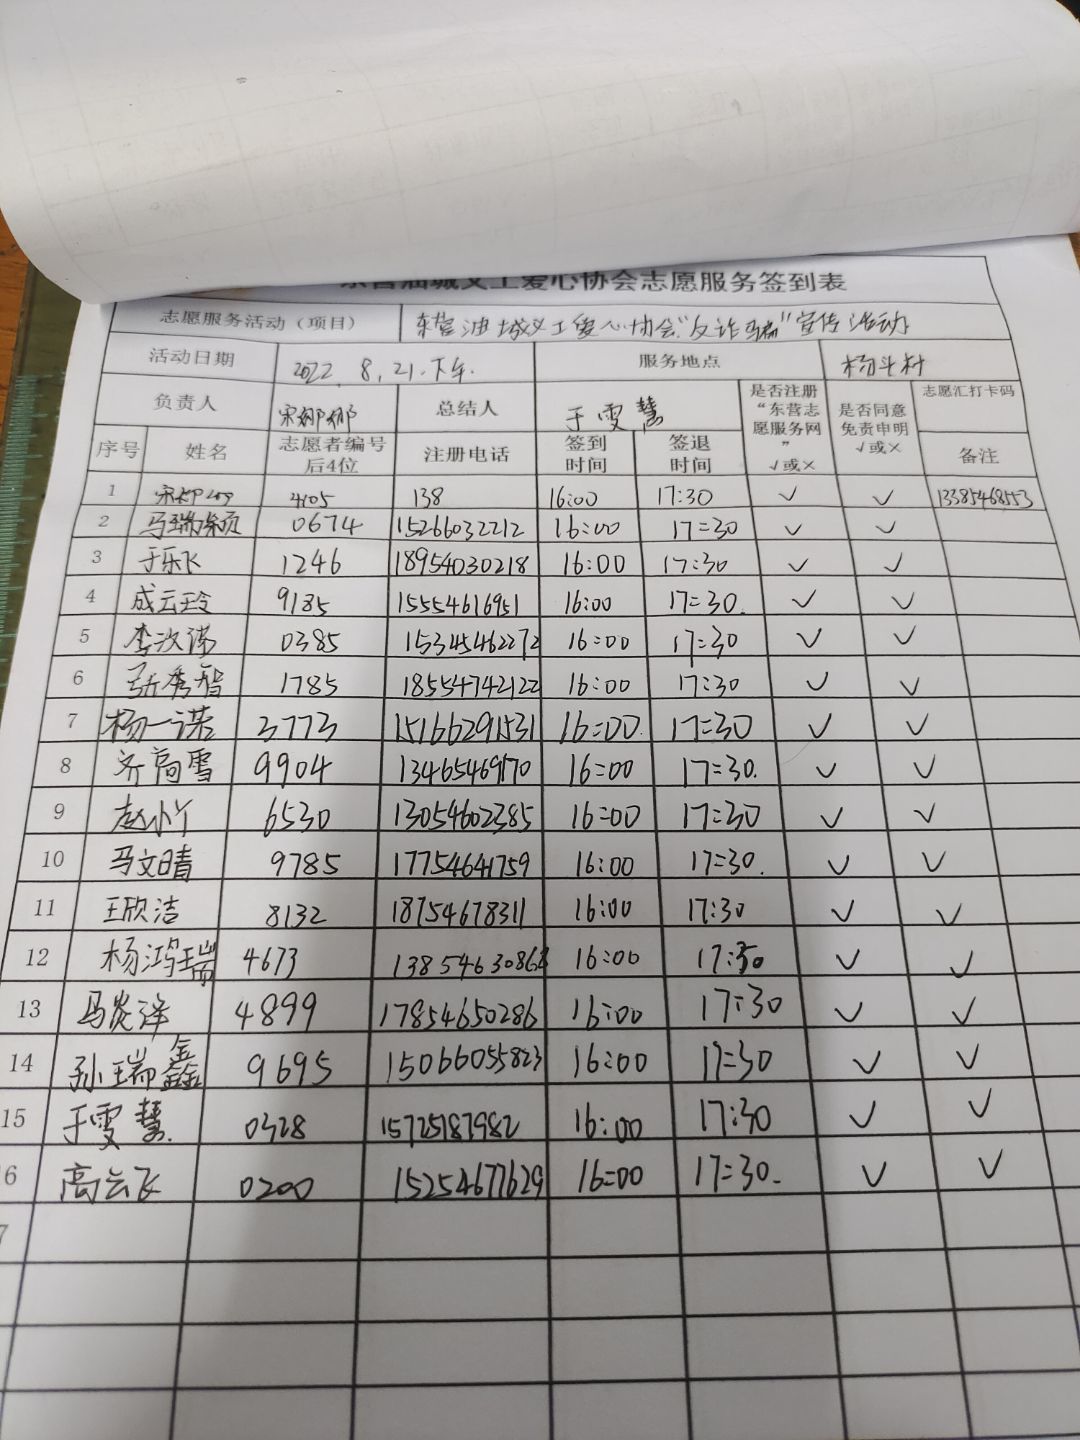 东营油城义工爱心协会志愿服务签到表
志愿服务活动（项目） 东营油城义工爱心协会"反诈骗"宣传活动
活动日期 2022.8.21.下午. 服务地点 杨斗村
负责人 宋娜娜 总结人 于雪慧 是否注册“东营志愿服务网” √或× 是否同意免责申明 √或× 志愿汇打卡码
序号 姓名 志愿者编号后4位 注册电话 签到时间 签退时间 备注
1 宋娜娜 4105 138 16:00 17:30 √ √ 13385468553
2 马瑞颖 0674 15266032212 16:00 17:30 √ √
3 于乐飞 1246 18954030218 16:00 17:30 √ √
4 成云玲 9185 15554616951 16:00 17:30. √ √
5 李汶 0385 15345462272 16:00 17:30 √ √
6 秀智 1785 18554742122 16:00 17:30 √ √
7 杨一诺 3773 15166291531 16:00 17:30 √ √
8 齐高雪 9904 13465469170 16:00 17:30. √ √
9 赵小丫 6530 13054602385 16:00 17:30 √ √
10 马文晴 9785 17754641759 16:00 17:30. √ √
11 王欣洁 8132 18754678311 16:00 17:30 √ √
12 杨鸿瑞 4673 16:00 17:30 √ √
13 马炎泽 4899 17854650286 16:00 17:30 √ √
14 孙瑞鑫 9695 15066055823 16:00 17:30 √ √
15 于雪慧. 0328 15725187982 16:00 17:30 √ √
6 高云飞 0200 15254677629 16:00 17:30. √ √
7